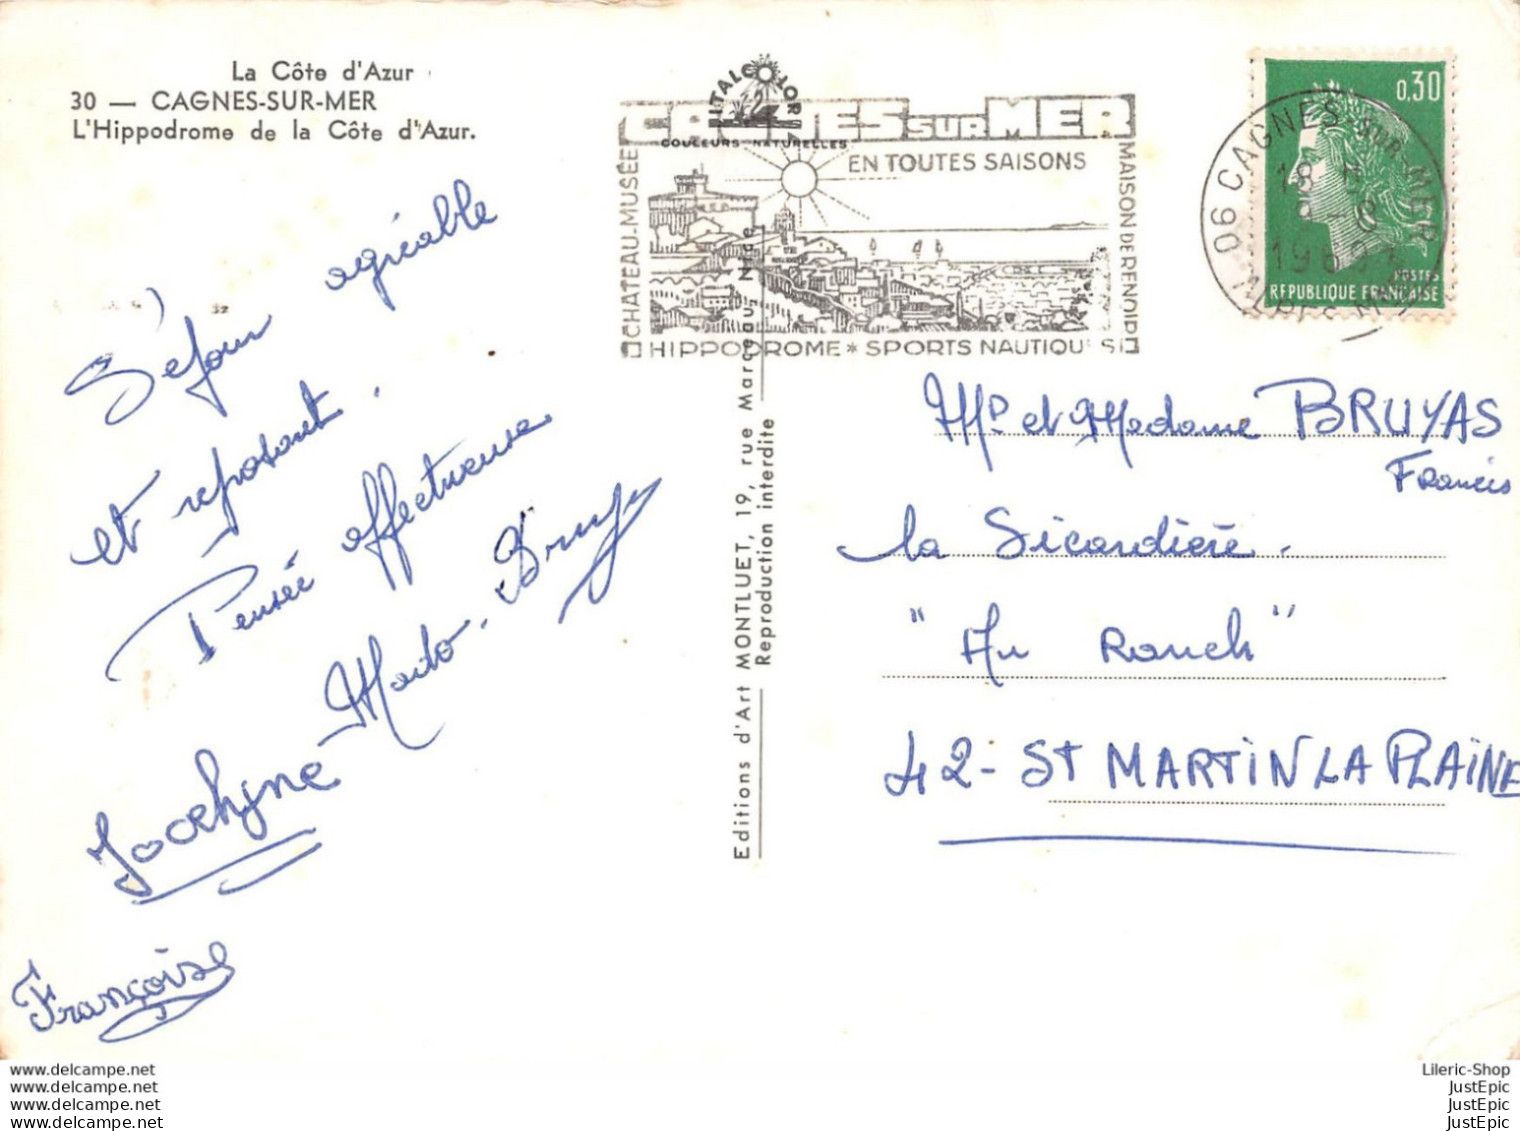 La Côte d'Azur
30 — CAGNES-SUR-MER
L'Hippodrome de la Côte d'Azur.
Séjour agréable
et reposant.
Pensée affectueuse
Mado. Bruyas
Jocelyne
Françoise
ITALCOLOR
COULEURS NATURELLES
CAGNES SUR MER
EN TOUTES SAISONS
CHATEAU-MUSÉE
MAISON DE RENOIR
HIPPODROME * SPORTS NAUTIQU S
Editions d'Art MONTLUET, 19, rue Marceau, Nice
Reproduction interdite
0,30
POSTES
REPUBLIQUE FRANÇAISE
06 CAGNES SUR MER
18 H
1969
ALPES MAR
Mr et Madame BRUYAS
Francis
la Sicardière.
"Au Ranch"
42 - St MARTIN LA PLAINE
www.delcampe.net
www.delcampe.net
www.delcampe.net
www.delcampe.net
Lileric-Shop
JustEpic
JustEpic
JustEpic